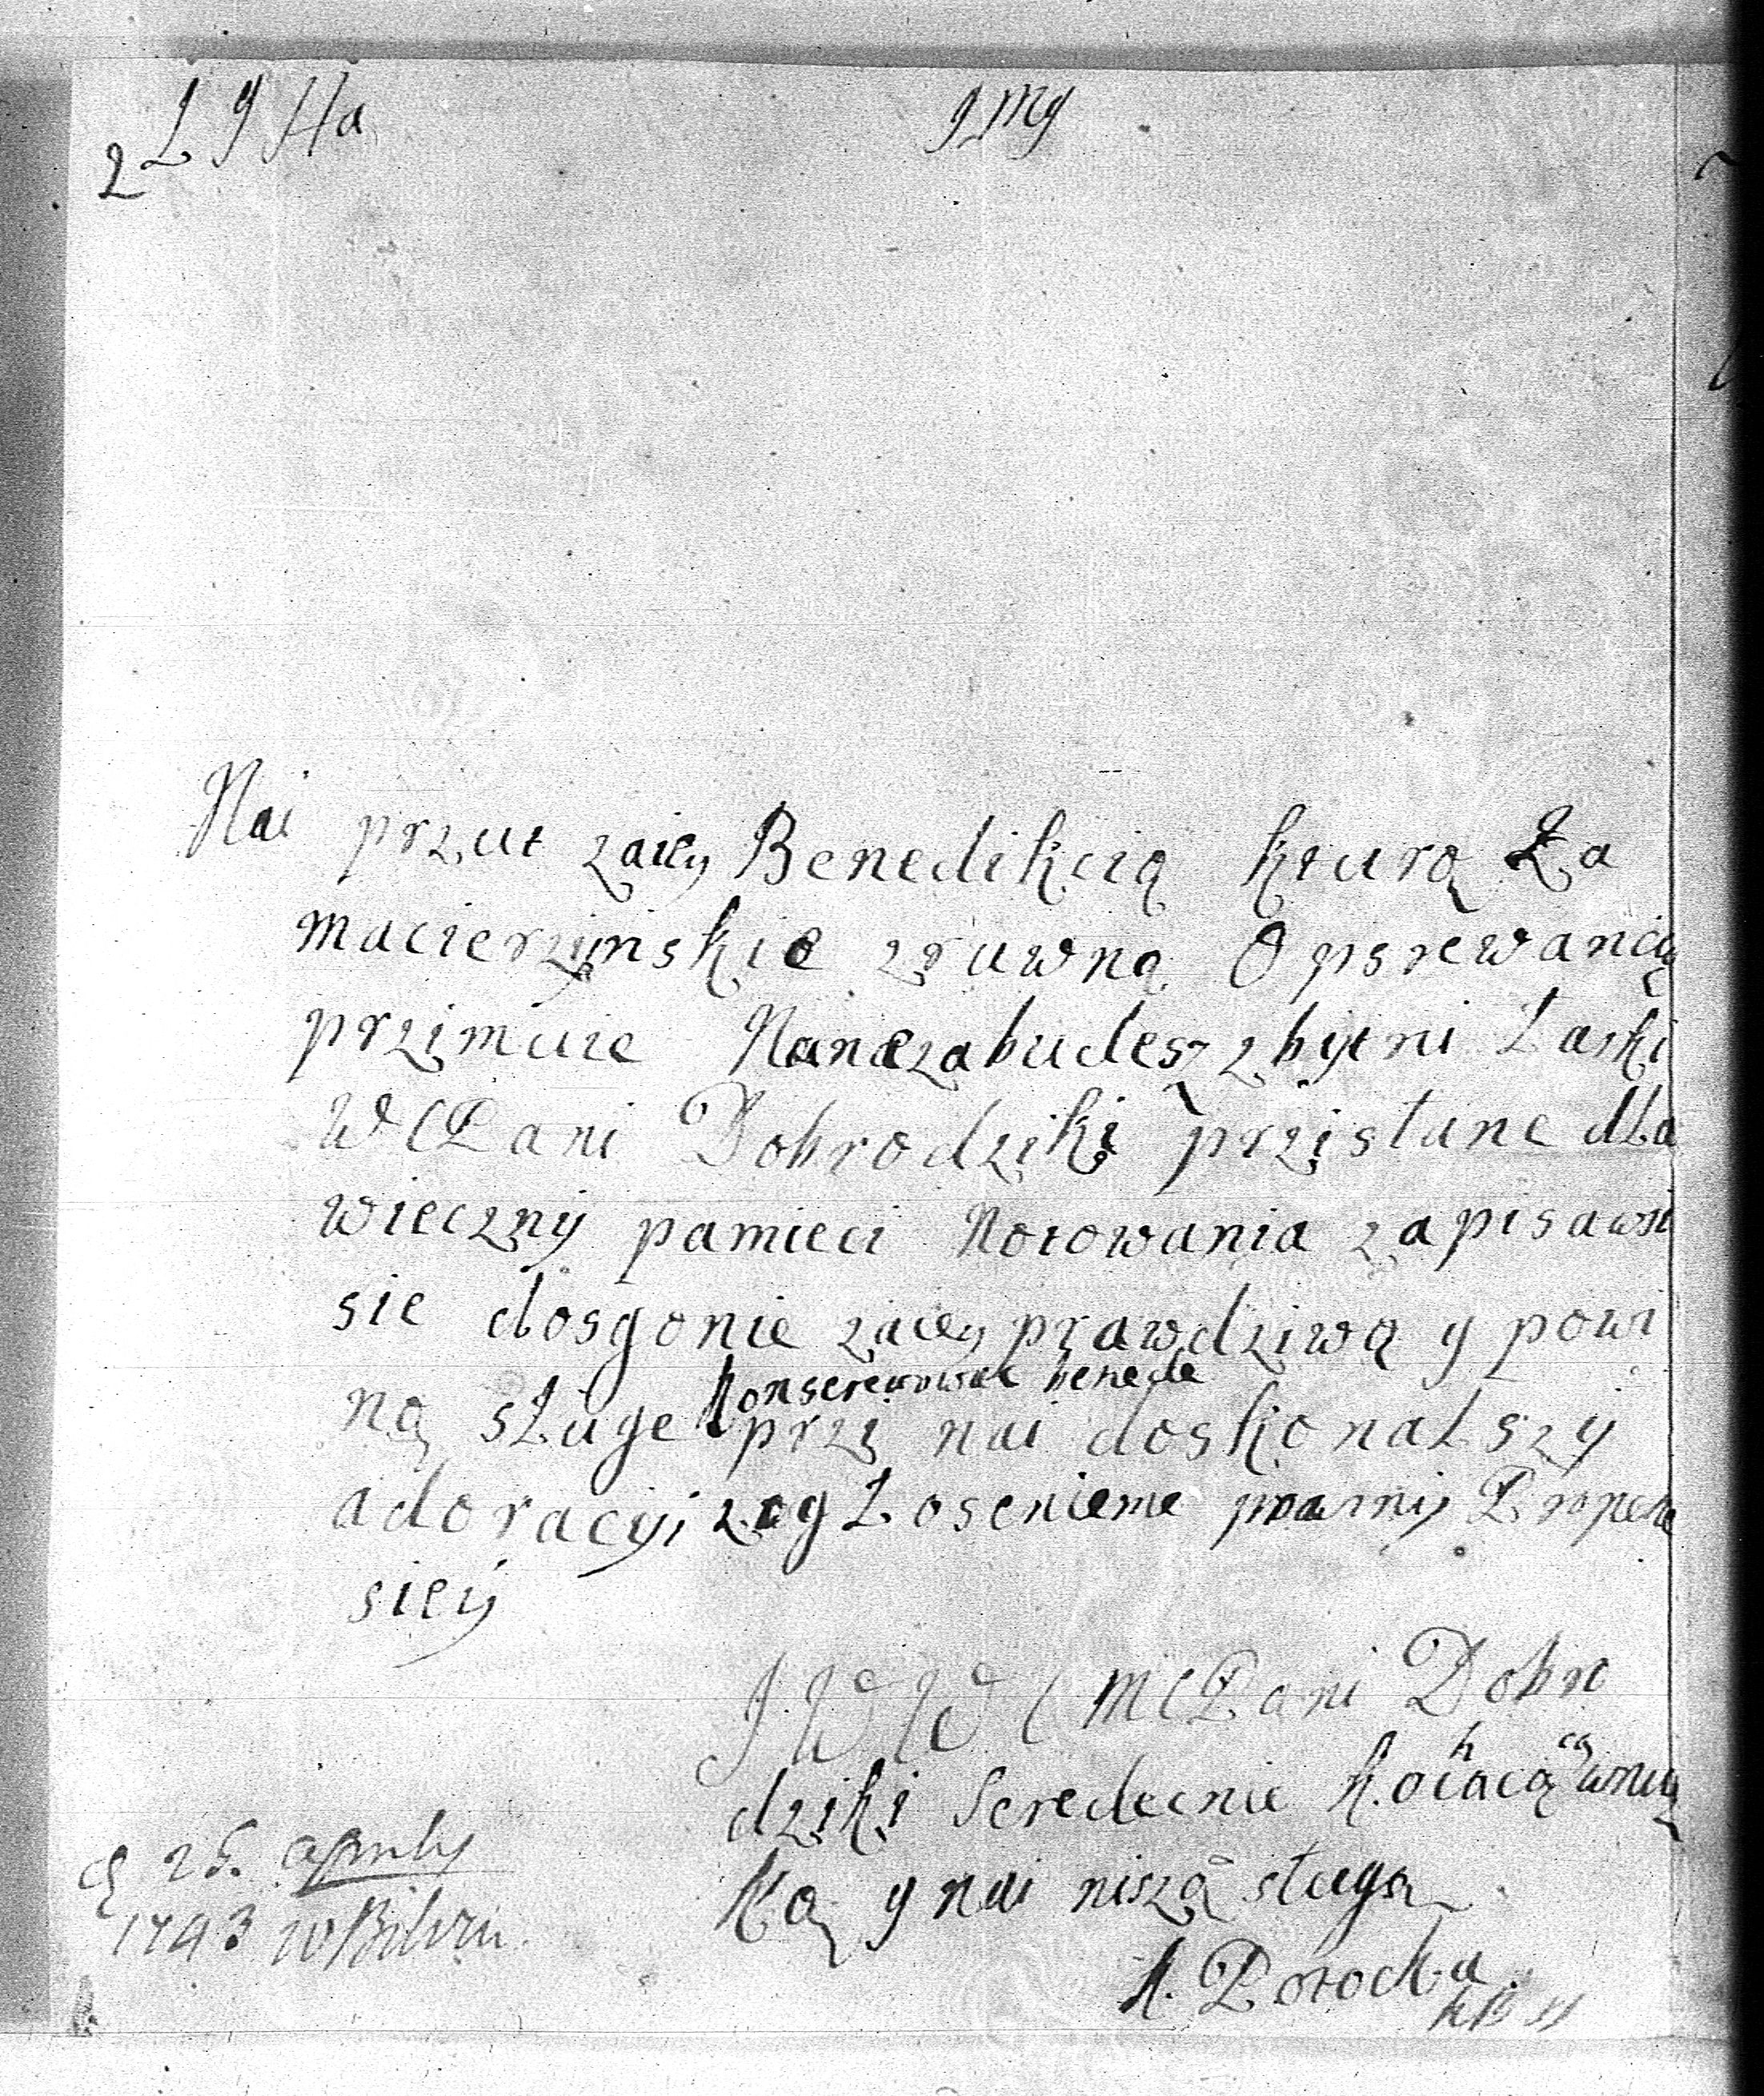 2 L J Ha JMJ
Nai przut zaięy Benedikcią kturą Za
macierzyinskie zruwną Opsrewancią
przimuie Nanezabudesz zbytni Łaski
W(Pani Dobrodziki przistane dla
wieczny pamieci Notowania zapisawsi
sie dosgonie zaięy prawdziwą y powi
ną sŁuge Konserewowac benede
przi nai doskonalszy
adoracyi zogŁosenieme Propen
sieÿ
J W W (M(Pani Dobro
dziki Seredecnie Kohaiącą wnucz
Ką y nai niszą sługą
K. Potocka
d 25. aprily
1743 w Bilwin